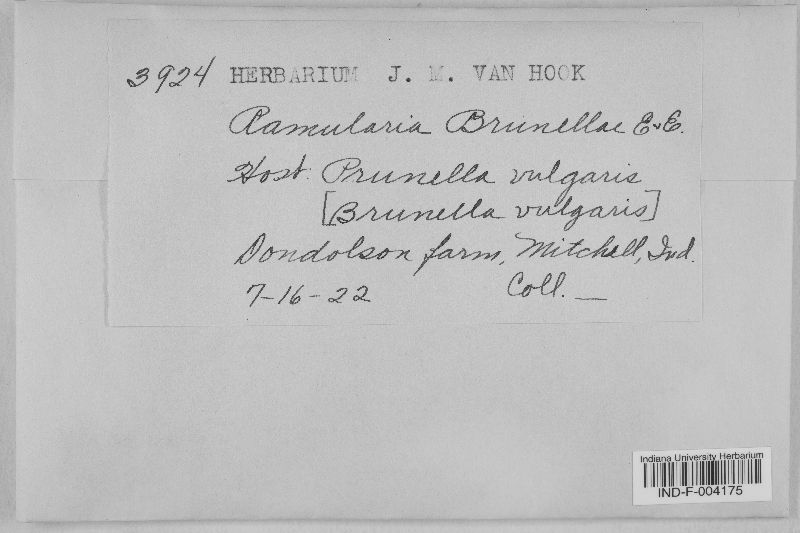 3924 HERBARIUM J. M. VAN HOOK
Ramularia Brunellae E&E.
Host: Prunella vulgaris
[Brunella vulgaris]
Dondolson farm, Mitchell, Ind.
7-16-22 Coll. —
Indiana University Herbarium
IND-F-004175